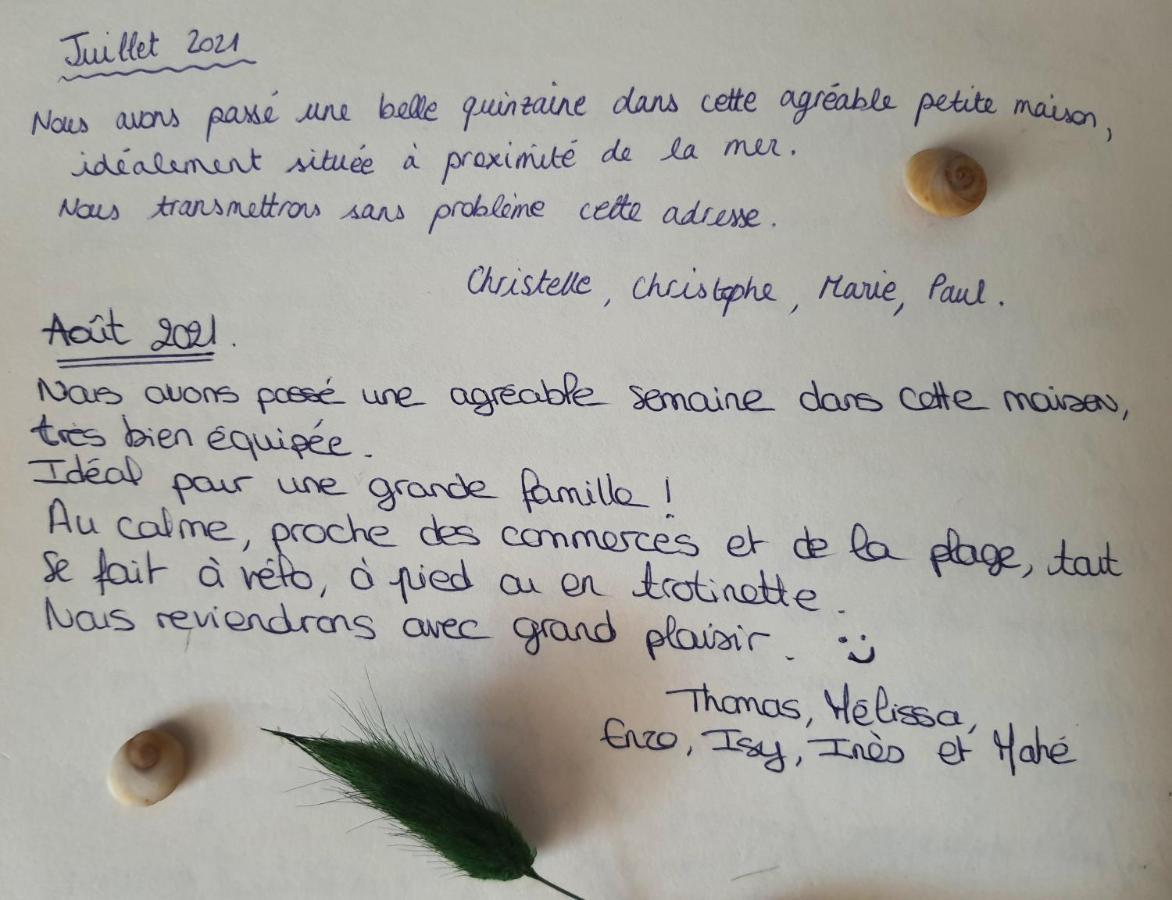 Juillet 2021
Nous avons passé une belle quinzaine dans cette agréable petite maison,
idéalement située à proximité de la mer.
Nous transmettrons sans problème cette adresse.
Christelle, Christophe, Marie, Paul.
Août 2021.
Nous avons passé une agréable semaine dans cette maison,
très bien équipée.
Idéal pour une grande famille !
Au calme, proche des commerces et de la plage, tout
se fait à vélo, à pied ou en trotinette.
Nous reviendrons avec grand plaisir. :)
Thomas, Mélissa,
Enzo, Isy, Inès et Mahé